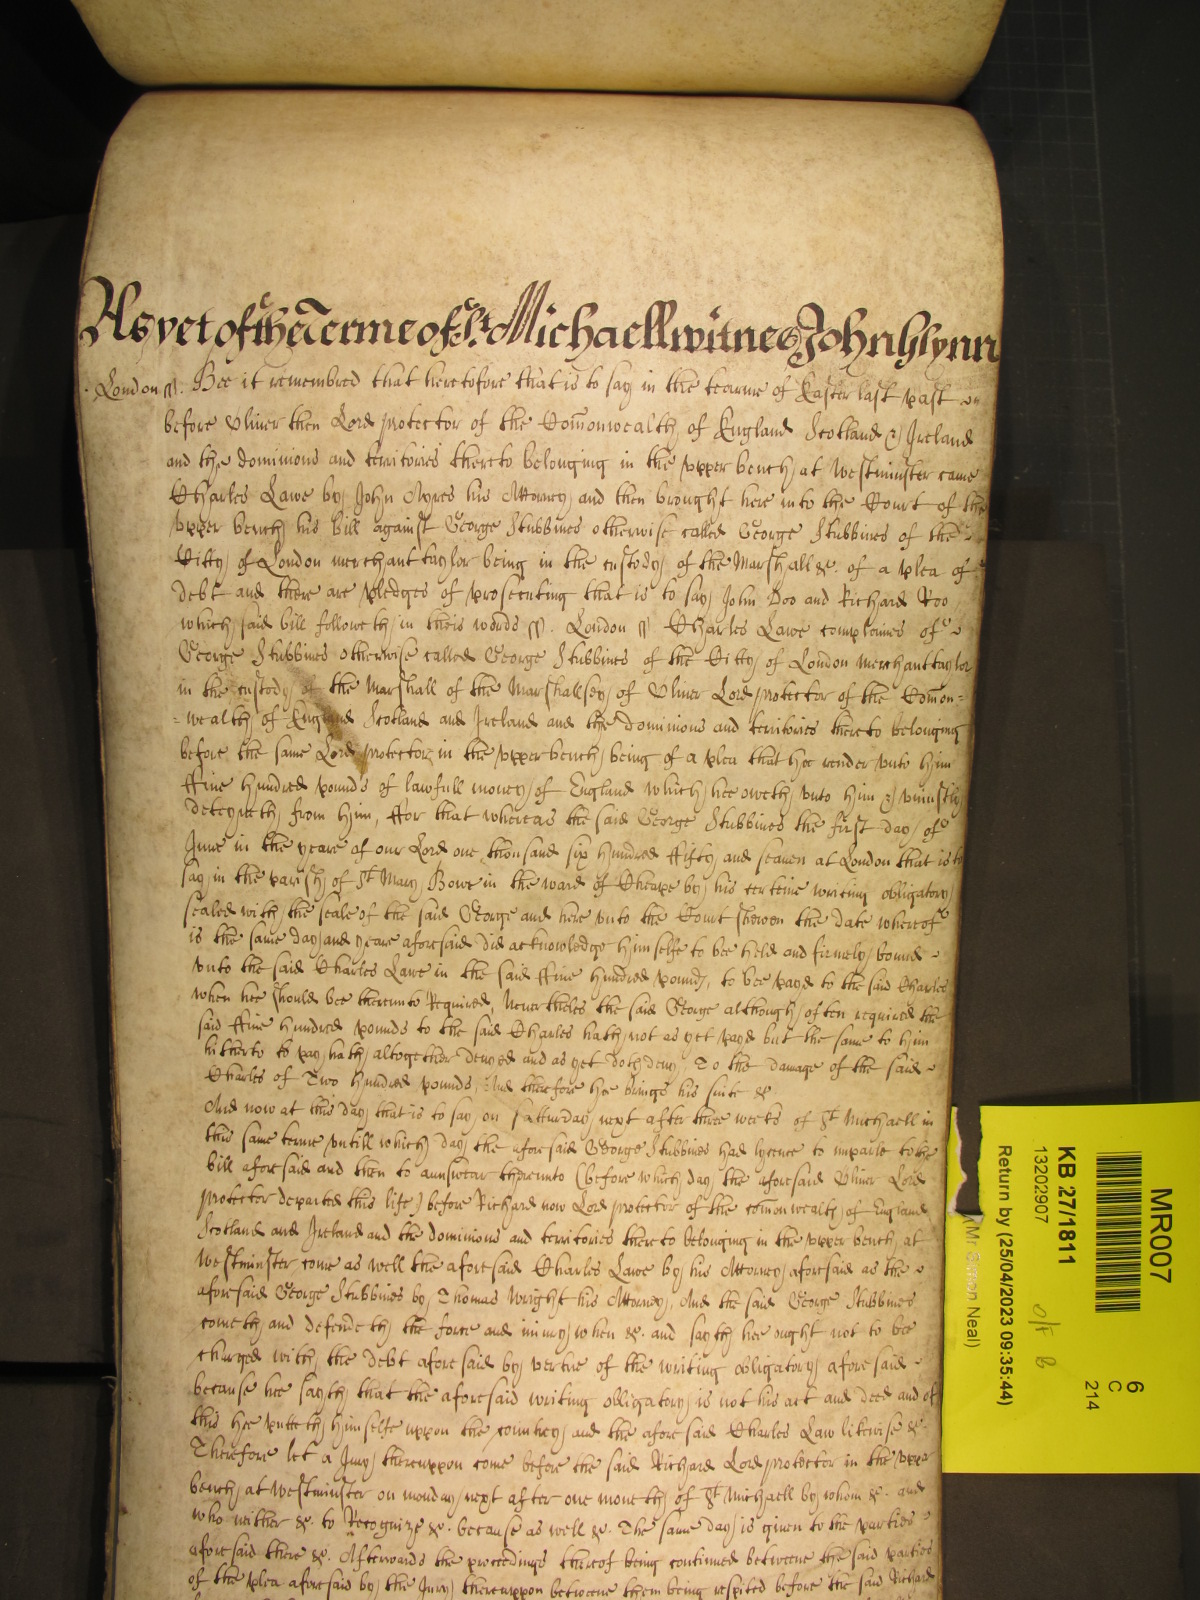 As yet of the Terme of St Michaell witnes John Glynn
London ss. Bee it remembred that heretofore that is to say in the tearme of Easter last past
before Oliver then Lord protector of the Comonwealth of England Scotland & Ireland
and the dominions and territories thereto belonging in the upper bench at Westminster came
Charles Lawe by John Ayres his Attorney and then brought here into the Court of the
upper bench his bill against George Stubbines otherwise called George Stubbines of the
Citty of London merchant taylor being in the custody of the Marshall &c. of a plea of
debt and there are pledges of prosecuting that is to say John Doo and Richard Roo
which said bill followeth in theis words ss. London ss Charles Lawe complaines of
George Stubbines otherwise called George Stubbines of the Citty of London Merchant taylor
in the custody of the Marshall of the Marshallsey of Oliver Lord protector of the Comon=
=wealth of England Scotland and Ireland and the dominions and territories thereto belonging
before the same Lord protector in the upper bench being of a plea that hee render unto him
ffive hundred pounds of lawfull money of England which hee oweth unto him & uniustly
deteyneth from him, ffor that whereas the said George Stubbines the first day of
June in the yeare of our Lord one thousand six hundred ffifty and seaven at London that is to
say in the parish of St Mary Bowe in the ward of Cheape by his certeine writing obligatory
sealed with the seale of the said George and here unto the Court shewen the date whereof
is the same day and yeare aforesaid did acknowledge himselfe to bee held and firmely bound
unto the said Charles Lawe in the said ffive hundred pounds, to bee payd to the said Charles
when hee should bee thereunto Required, Neverthelès the said George although often required the
said ffive hundred pounds to the said Charles hath not as yet payd but the same to him
hitherto to pay hath altogether denyed and as yet doth deny, To the damage of the said
Charles of Two hundred pounds, And therefore hee brings his suite &c
And now at this day that is to say on Satturday next after three weeks of St Michaell in
this same terme untill which day the aforesaid George Stubbines had lycence to imparle to the
bill aforesaid and then to aunswear thereunto (before which day the aforesaid Oliver Lord
protector departed this life) before Richard now Lord protector of the comonwealth of England
Scotland and Ireland and the dominions and territories thereto belonging in the upper bench at
Westminster come as well the aforesaid Charles Lawe by his Attorney aforesaid as the
aforesaid George Stubbines by Thomas Wright his Attorney, And the said George Stubbines
cometh and defendeth the force and iniury when &c. and sayth hee ought not to bee
charged with the debt aforesaid by vertue of the writing obligatory aforesaid
because hee sayth that the aforesaid writing obligatory is not his act and deed and of
this hee putteth himselfe uppon the countrey and the aforesaid Charles Law likewise &c.
Therefore let a Jury thereuppon come before the said Richard Lord protector in the upper
bench at Westminster on monday next after one moneth of St Michaell by whom &c. and
who neither &c. to Recognize &c. because as well &c. The same day is given to the parties
aforesaid there &c. Afterwards the proceedings thereof being continued betweene the said parties
of the plea aforesaid by the Jury thereuppon betweene them being respited before the said Richard
MR007
6
C
214
KB 27/1811
13202907
O/F B
Return by (25/04/2023 09:35:44)
(Mr Simon Neal)